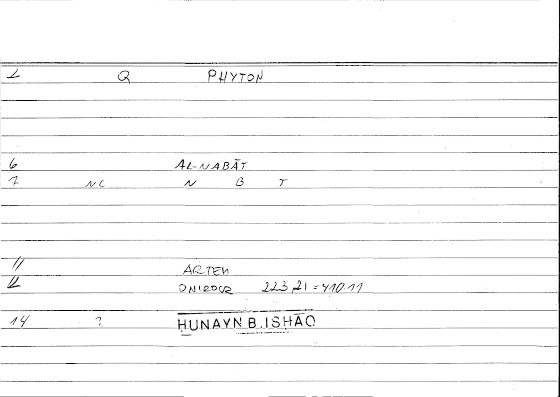 1 Q PHYTON
6 AL-NABĀT
7 NC N B T
11 ARTEM
12 ONIROCR 223,21 = 410.11
14 ? HUNAYN B. ISHĀQ